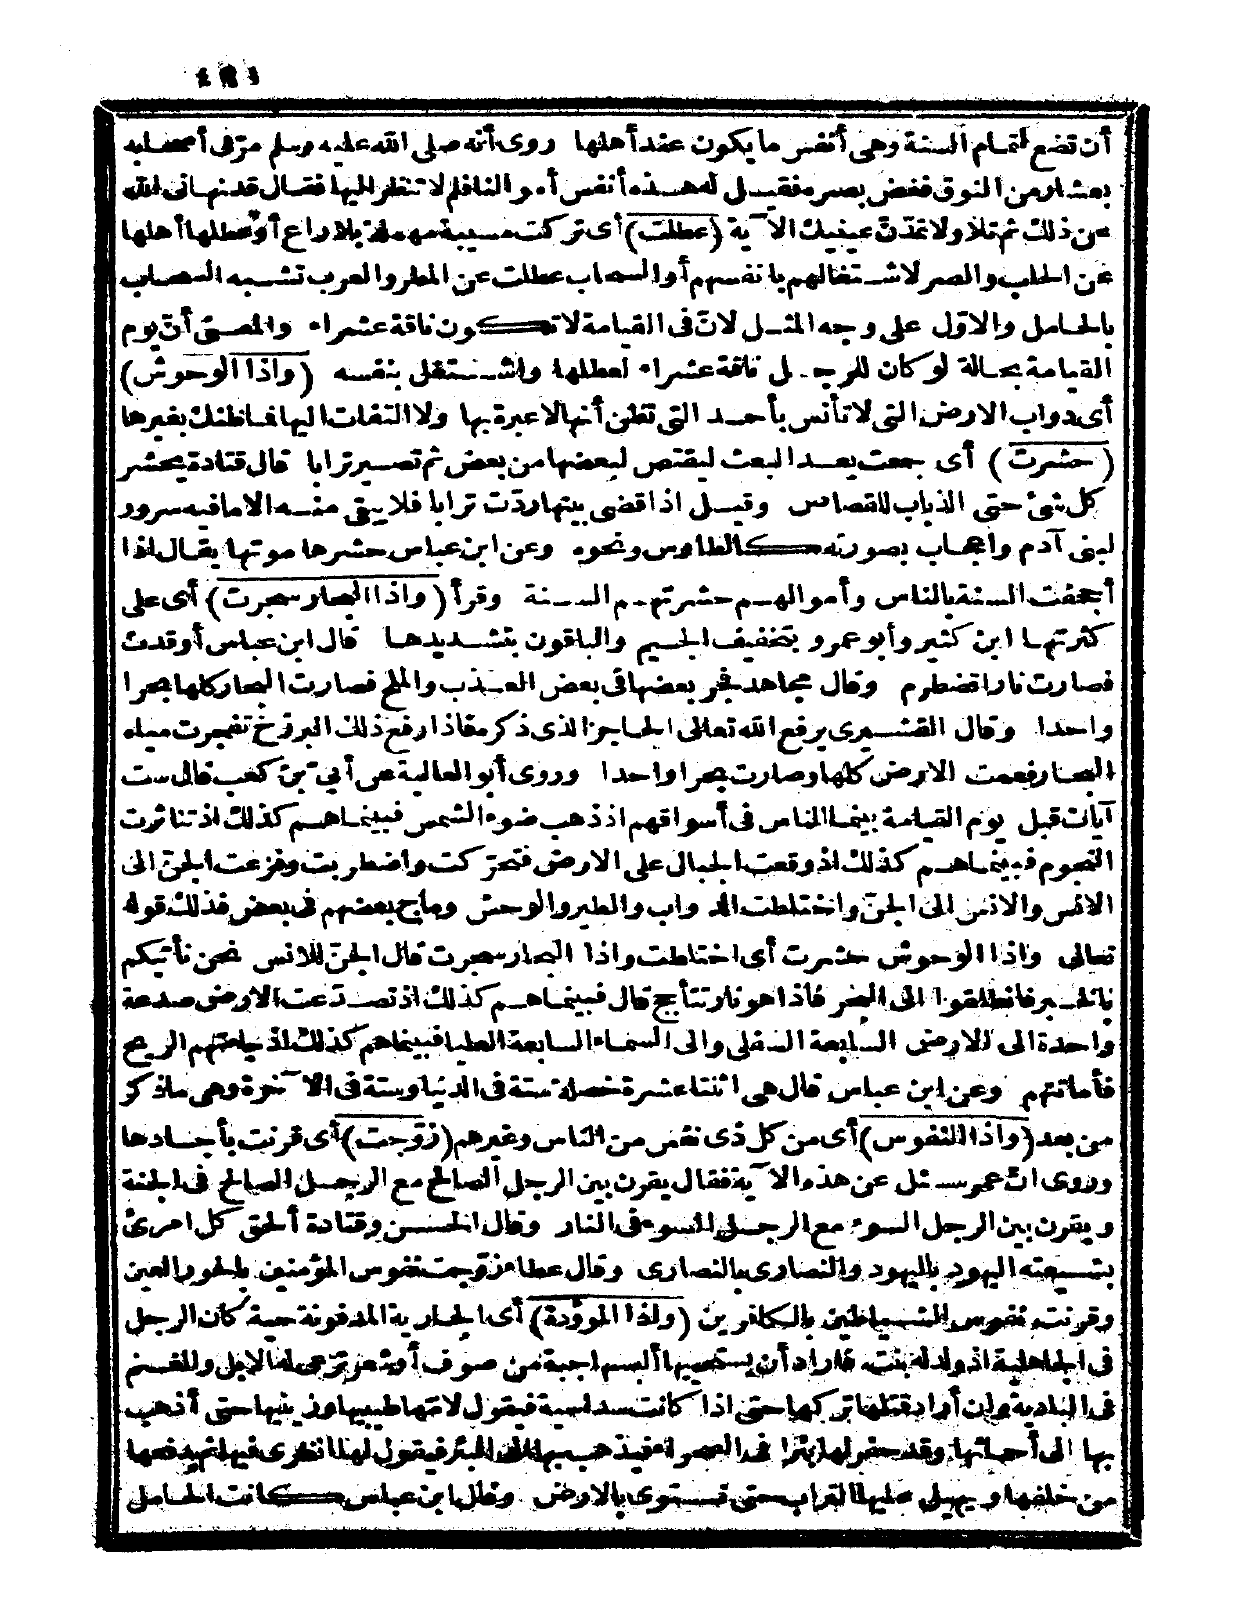 أن تضع لتمام السنة وهى أنفس ما يكون عند أهلها روى أنه صلى الله عليه وسلم مرّ فى أصحابه
بعشار من النوق فغض بصره فقيل له هذه أنفس أموالنا فلم لا تنظر اليها فقال قد نهانى الله
عن ذلك ثم تلا ولا تمدّنّ عينيك الآية (عطلت) أى تركت مسيبة مهملة بلا راع أو عطلها أهلها
عن الحلب والصر لاشتغالهم بانفسهم أو السحاب عطلت عن المطر والعرب تشبه السحاب
بالحامل والاوّل على وجه المثل لانّ فى القيامة لا تكون ناقة عشراء والمعنى أنّ يوم
القيامة بحالة لو كان للرجل ناقة عشراء لعطلها واشتغل بنفسه (واذا الوحوش)
أى دواب الارض التى لا تأنس بأحد التى تظن أنها لا عبرة بها ولا التفات اليها فما ظنك بغيرها
(حشرت) أى جمعت بعد البعث ليقتص لبعضها من بعض ثم تصير ترابا قال قتادة يحشر
كل شئ حتى الذباب للقصاص وقيل اذا قضى بينها ردّت ترابا فلا يبقى منه الا ما فيه سرور
لبنى آدم واعجاب بصورته كالطاوس ونحوه وعن ابن عباس حشرها موتها يقال اذا
أجحفت السنة بالناس وأموالهم حشرتهم السنة وقرأ (واذا البحار سجرت) أى على
كثرتها ابن كثير وأبو عمرو بتخفيف الجيم والباقون بتشديدها قال ابن عباس أوقدت
فصارت نارا تضطرم وقال مجاهد فجر بعضها فى بعض العذب والملح فصارت البحار كلها بحرا
واحدا وقال القشيرى يرفع الله تعالى الحاجز الذى ذكر فاذا رفع ذلك البرزخ تفجرت مياه
البحار فعمت الارض كلها وصارت بحرا واحدا وروى أبو العالية عن أبىّ بن كعب قال ست
آيات قبل يوم القيامة بينما الناس فى أسواقهم اذ ذهب ضوء الشمس فبينما هم كذلك اذ تناثرت
النجوم فبينما هم كذلك اذ وقعت الجبال على الارض فتحرّكت واضطربت وفزعت الجنّ الى
الانس والانس الى الجنّ واختلطت الدواب والطير والوحش وماج بعضهم فى بعض فذلك قوله
تعالى واذا الوحوش حشرت أى اختلطت واذا البحار سجرت قال الجنّ للانس نحن نأتيكم
بالخبر فانطلقوا الى البحر فاذا هو نار تتأجج قال فبينما هم كذلك اذ تصدّعت الارض صدعة
واحدة الى الارض السابعة السفلى والى السماء السابعة العليا فبينما هم كذلك اذ جاءتهم الريح
فأماتتهم وعن ابن عباس قال هى اثنتا عشرة خصلة ستة فى الدنيا وستة فى الآخرة وهى ما ذكر
من بعد (واذا النفوس) أى من كل ذى نفس من الناس وغيرهم (زوّجت) أى قرنت بأجسادها
وروى انّ عمر سئل عن هذه الآية فقال يقرن بين الرجل الصالح مع الرجل الصالح فى الجنة
ويقرن بين الرجل السوء مع الرجل السوء فى النار وقال الحسن وقتادة ألحق كل امرئ
بشيعته اليهود باليهود والنصارى بالنصارى وقال عطاء زوّجت نفوس المؤمنين بالحور العين
وقرنت نفوس الشياطين بالكافرين (واذا الموؤدة) أى الجارية المدفونة حية كان الرجل
فى الجاهلية اذ ولد له بنت فاراد أن يستحييها ألبسها جبة من صوف أو شعر ترعى له الابل والغنم
فى البادية وان أراد قتلها تركها حتى اذا كانت سداسية فيقول لامّها طيبيها وزينيها حتى أذهب
بها الى أحمائها وقد حفر لها بئرا فى الصحراء فيذهب بها الى البئر فيقول لها انظرى فيها ثم يدفعها
من خلفها ويهيل عليها التراب حتى تستوى بالارض وقال ابن عباس كانت الحامل